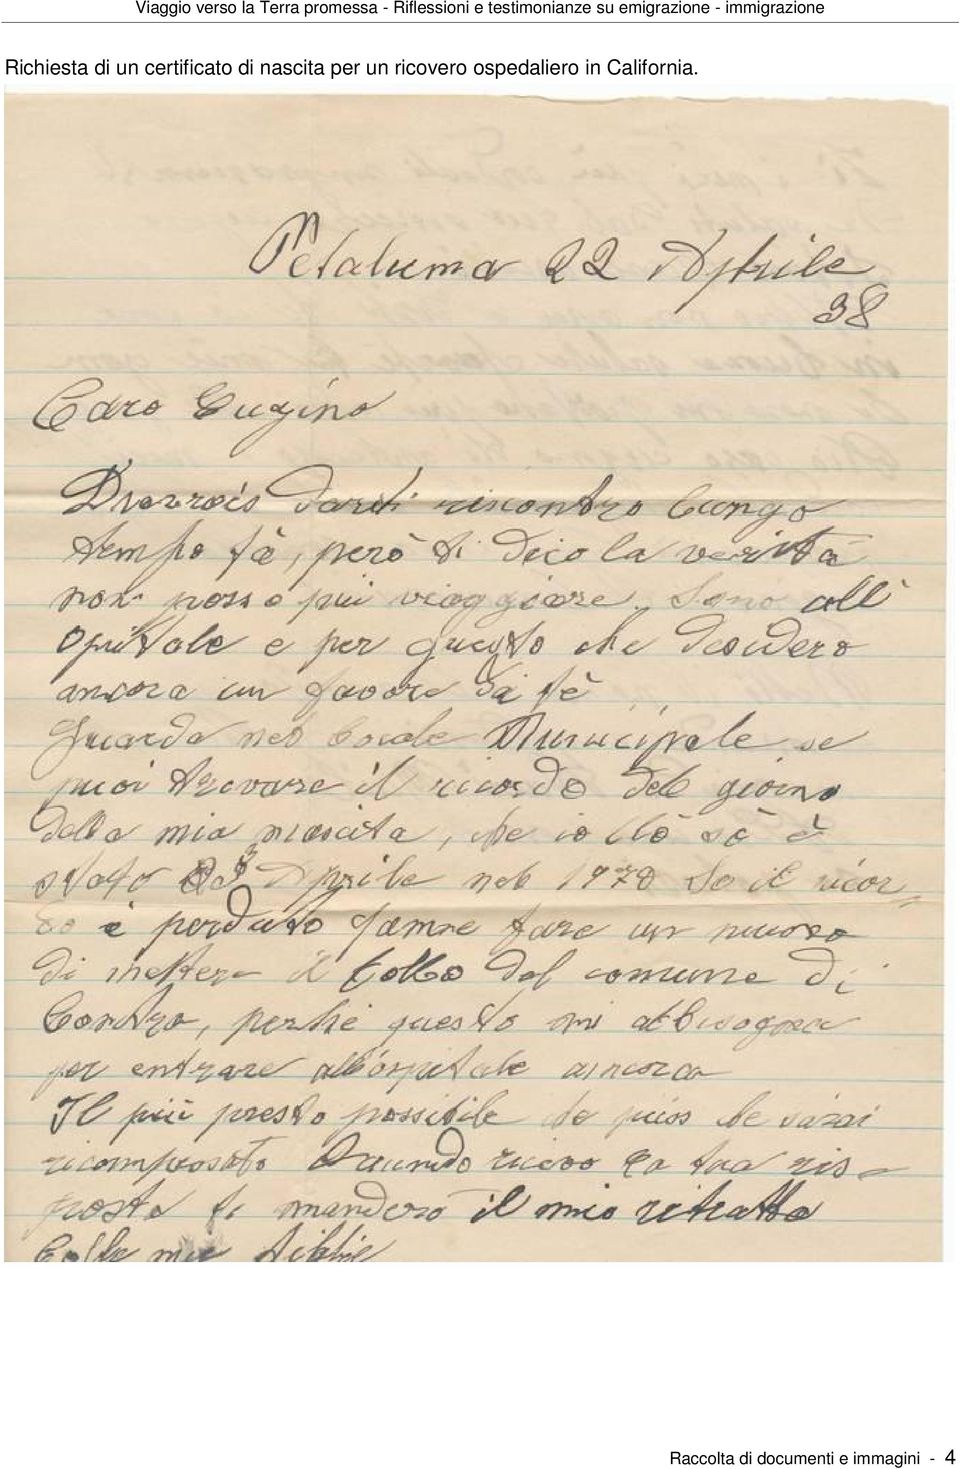 Viaggio verso la Terra promessa - Riflessioni e testimonianze su emigrazione - immigrazione
Richiesta di un certificato di nascita per un ricovero ospedaliero in California.
Petaluma 22 Aprile
38
Caro Cugino
darti riscontro lungo
tempo fà, però ti dico la verità
non posso più viaggiare. Sono all'
Opitale e per questo che desidero
ancora un favore da tè
Guarda nel locale Municipale se
puoi trovare il ricordo del giorno
della mia nascita, che io llò sò è
stato Aprile nel 1870 Se il ricor-
do è perduto famne fare un nuovo
di mettere il bollo del comune di
Contra, perchè questo mi abbisogna
per entrare all'ospitale ancora
Il più presto possibile
ricomposato Quando ricevo la tua ris-
posta ti manderò il mio ritratto
Colle mie
Raccolta di documenti e immagini - 4